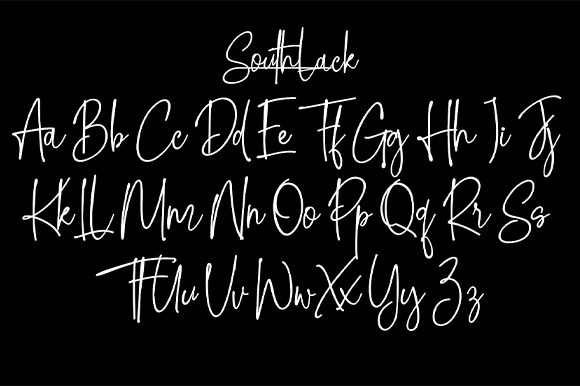 SouthLack
Aa Bb Cc Dd Ee Ff Gg Hh Ii Jj
Kk Ll Mm Nn Oo Pp Qq Rr Ss
Tt Uu Vv Ww Xx Yy Zz